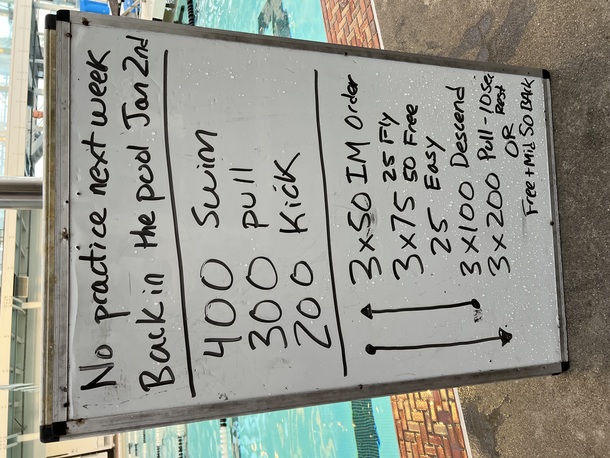 No practice next week
Back in the pool Jan 2nd
400 Swim
300 pull
200 Kick
3x50 IM Order
3x75 25 Fly 50 Free
25 Easy
3x100 Descend
3x200 Pull-10Sec Rest
OR
Free + Mid 50 Back